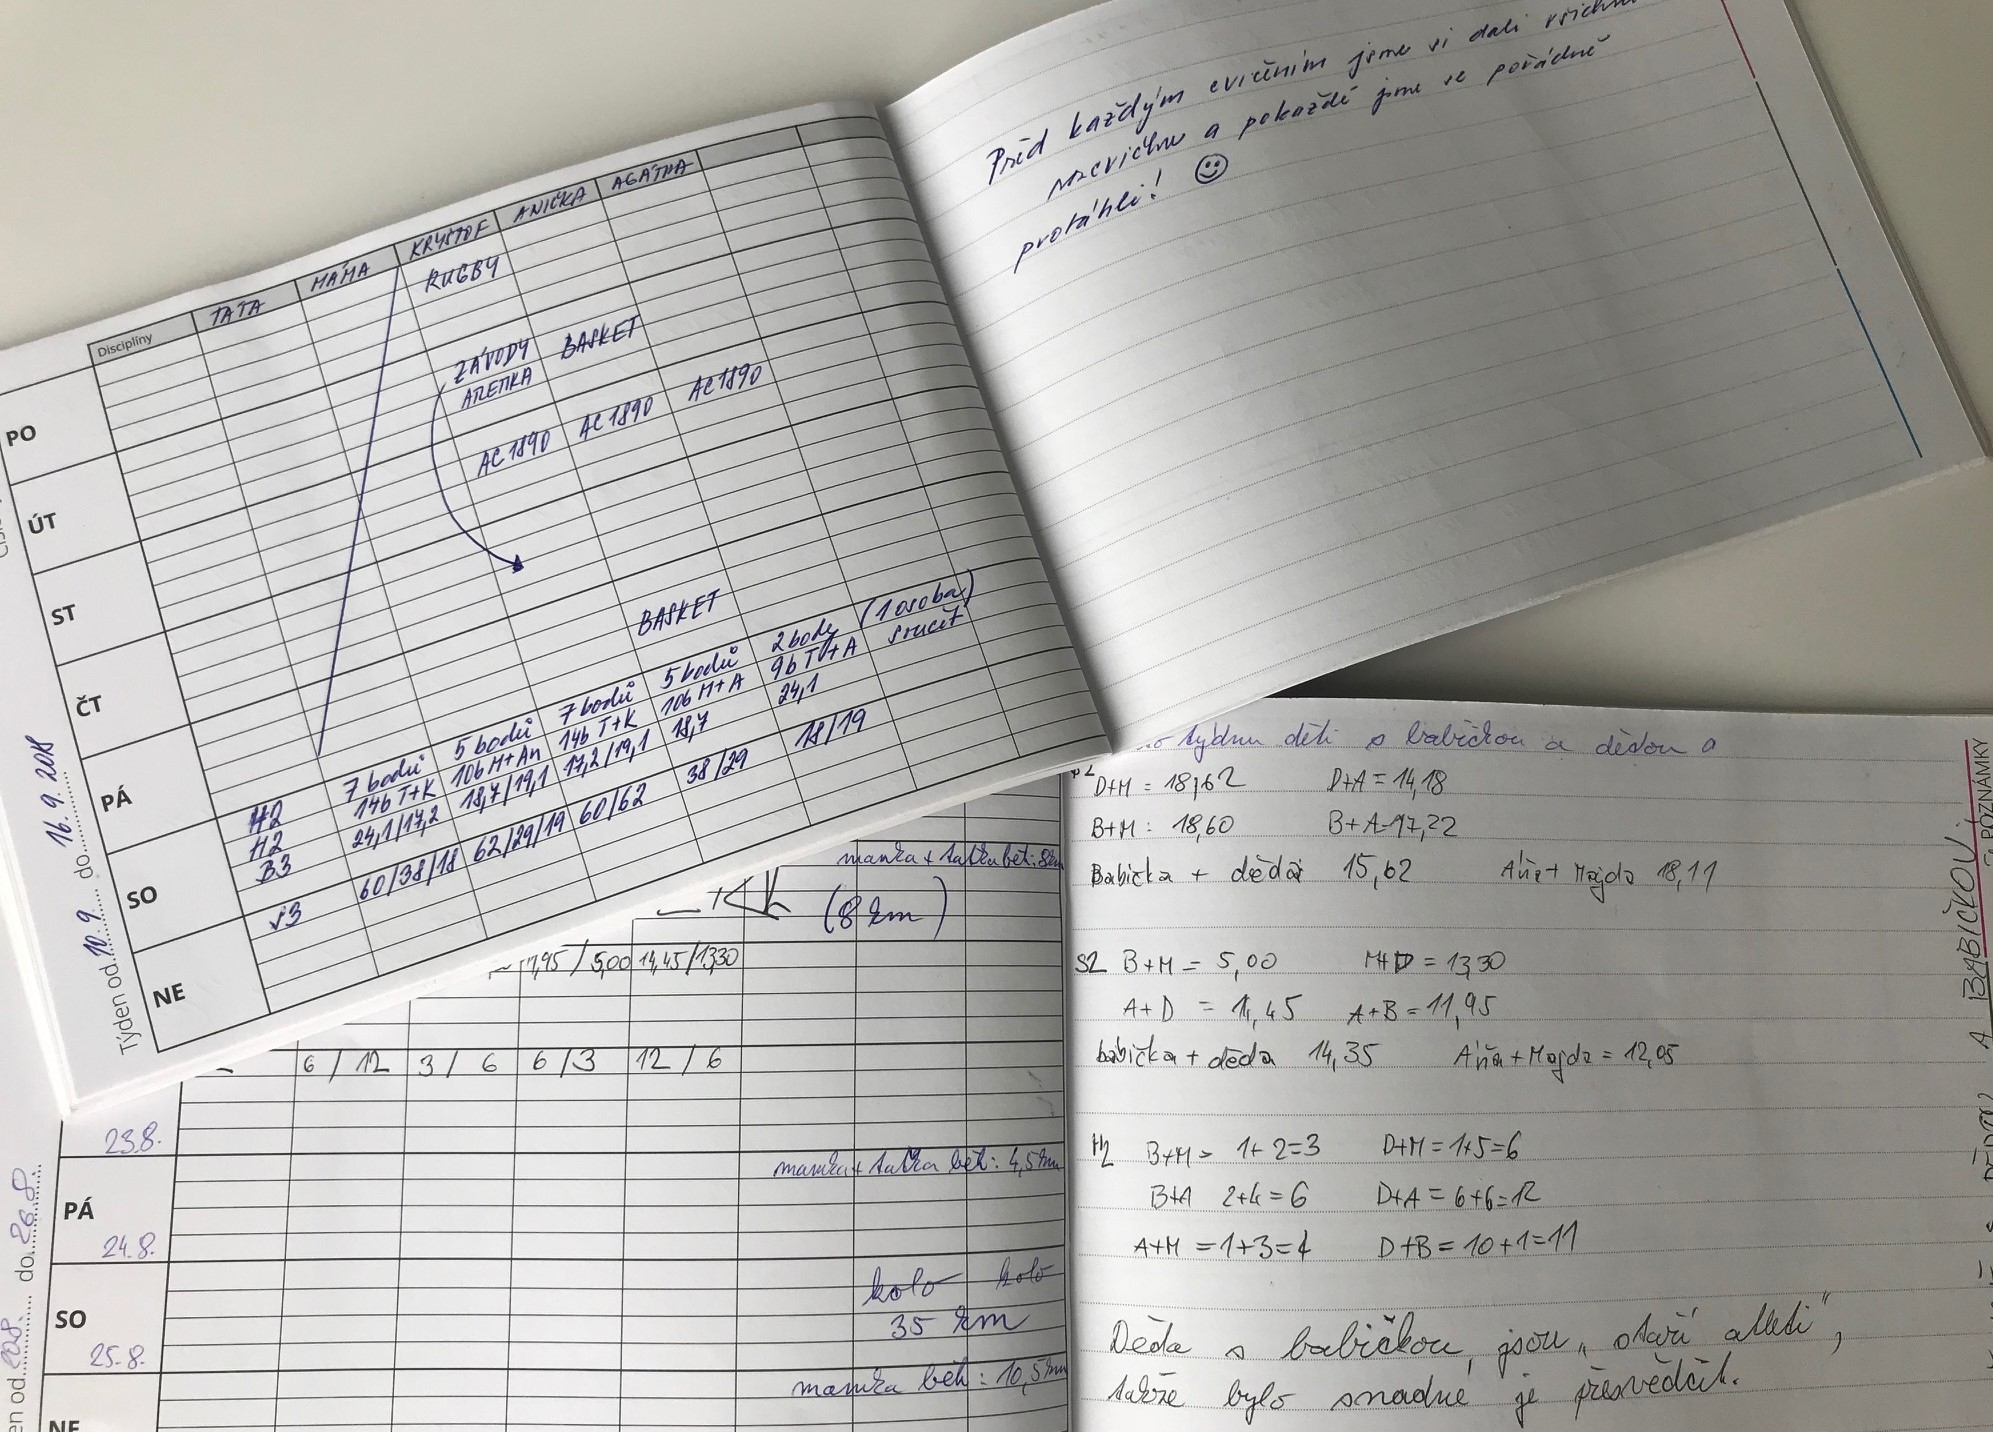 Před každým cvičením jsme si dali
rozcvičku a pokaždé jsme se pořádně
protáhli!
Disciplíny TÁTA MÁMA KRYŠTOF ANIČKA AGÁTKA
RUGBY
ZÁVODY BASKET
ATLETIKA
AC1890 AC1890 AC1890
BASKET
PO
ÚT
ST
ČT
PÁ
SO
NE
H2 7 bodů 5 bodů 7 bodů 5 bodů 2 body (1 osoba)
H2 14b T+K 10b M+An 14b T+K 10b M+A 9b T+A součet
B3 24,1/17,2 18,7/19,1 17,2/19,1 18,7 24,1
60/38/18 62/29/19 60/62 38/29 18/19
Týden od 10.9. do 16.9.2018
týdnu děti s babičkou a dědou a
D+M = 18,62 D+A = 14,18
B+M = 18,60 B+A = 17,22
Babička + děda 15,62 Áňa + Majda 18,11
S2 B+M = 5,00 M+D = 13,30
A+D = 14,45 A+B = 11,95
babička + děda 14,35 Áňa + Majda = 12,05
H2 B+M = 1+2=3 D+M = 1+5=6
B+A 2+4=6 D+A = 6+6=12
A+M = 1+3=4 D+B = 10+1=11
Děda s babičkou jsou „staří atleti",
takže bylo snadné je přesvědčit.
POZNÁMKY
A BABIČKOU!
mamka + taťka běh: 8km
(8 km)
11,95 / 5,00 14,45 / 13,30
6 / 12 3 / 6 6 / 3 12 / 6
23.8.
mamka + taťka běh: 4,5 km
PÁ
24.8.
kolo kolo
SO 35 km
25.8.
mamka běh: 10,5 km
NE
do 26.8.